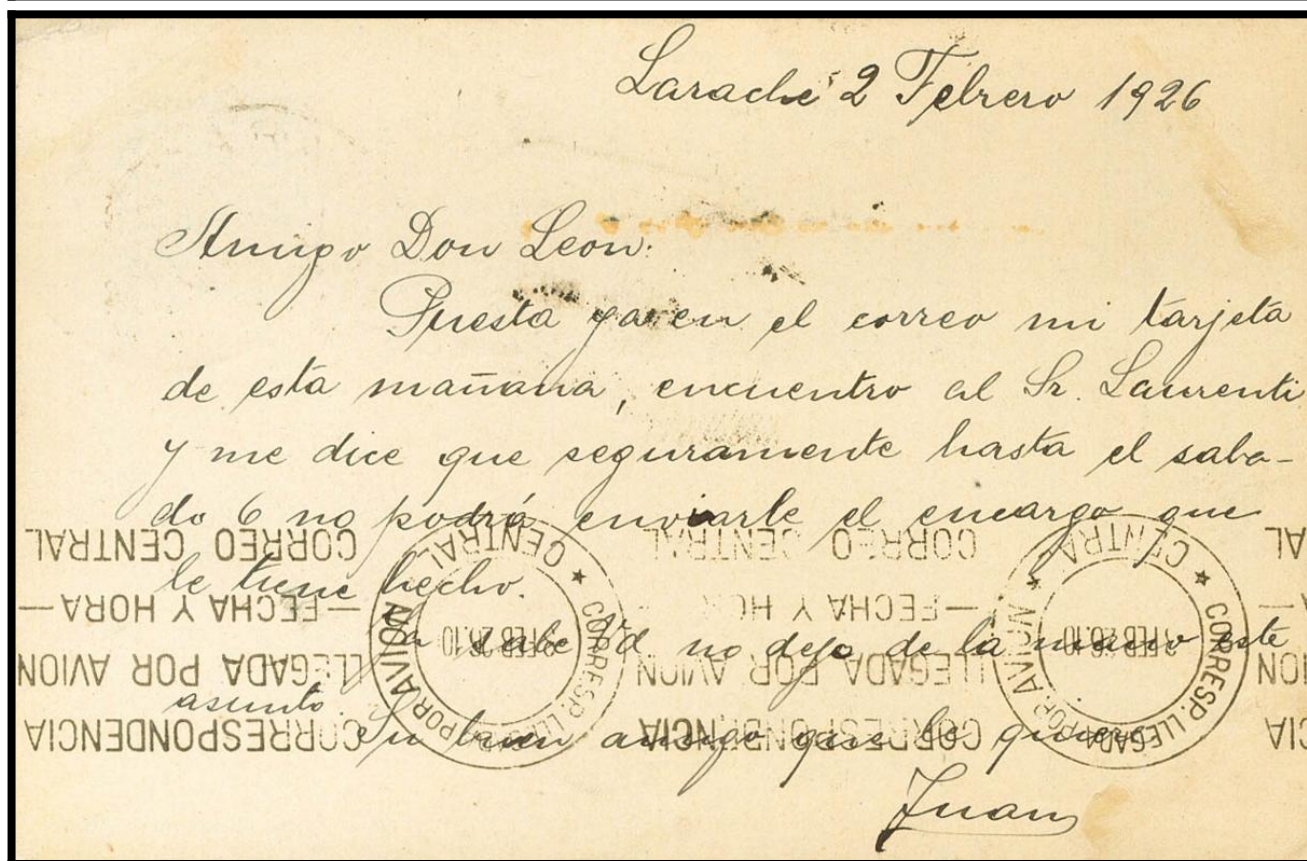 Larache 2 Febrero 1926
Amigo Don Leon:
Puesta ya en el correo mi tarjeta
de esta mañana, encuentro al Sr. Laurenti
y me dice que seguramente hasta el saba-
do 6 no podrá enviarle el encargo que
le tiene hecho.
Ya sabe Vd no dejo de la mano este
asunto.
Su buen amigo que le quiere
Juan
CORRESPONDENCIA
LLEGADA POR AVION
—FECHA Y HORA—
CORREO CENTRAL
CORRESP. LLEGADA POR AVION
★ CENTRAL ★
CORRESPONDENCIA
LLEGADA POR AVION
—FECHA Y
CORREO CENTRAL
CORRESP. LLEGADA POR AVION
★ CENTRAL ★